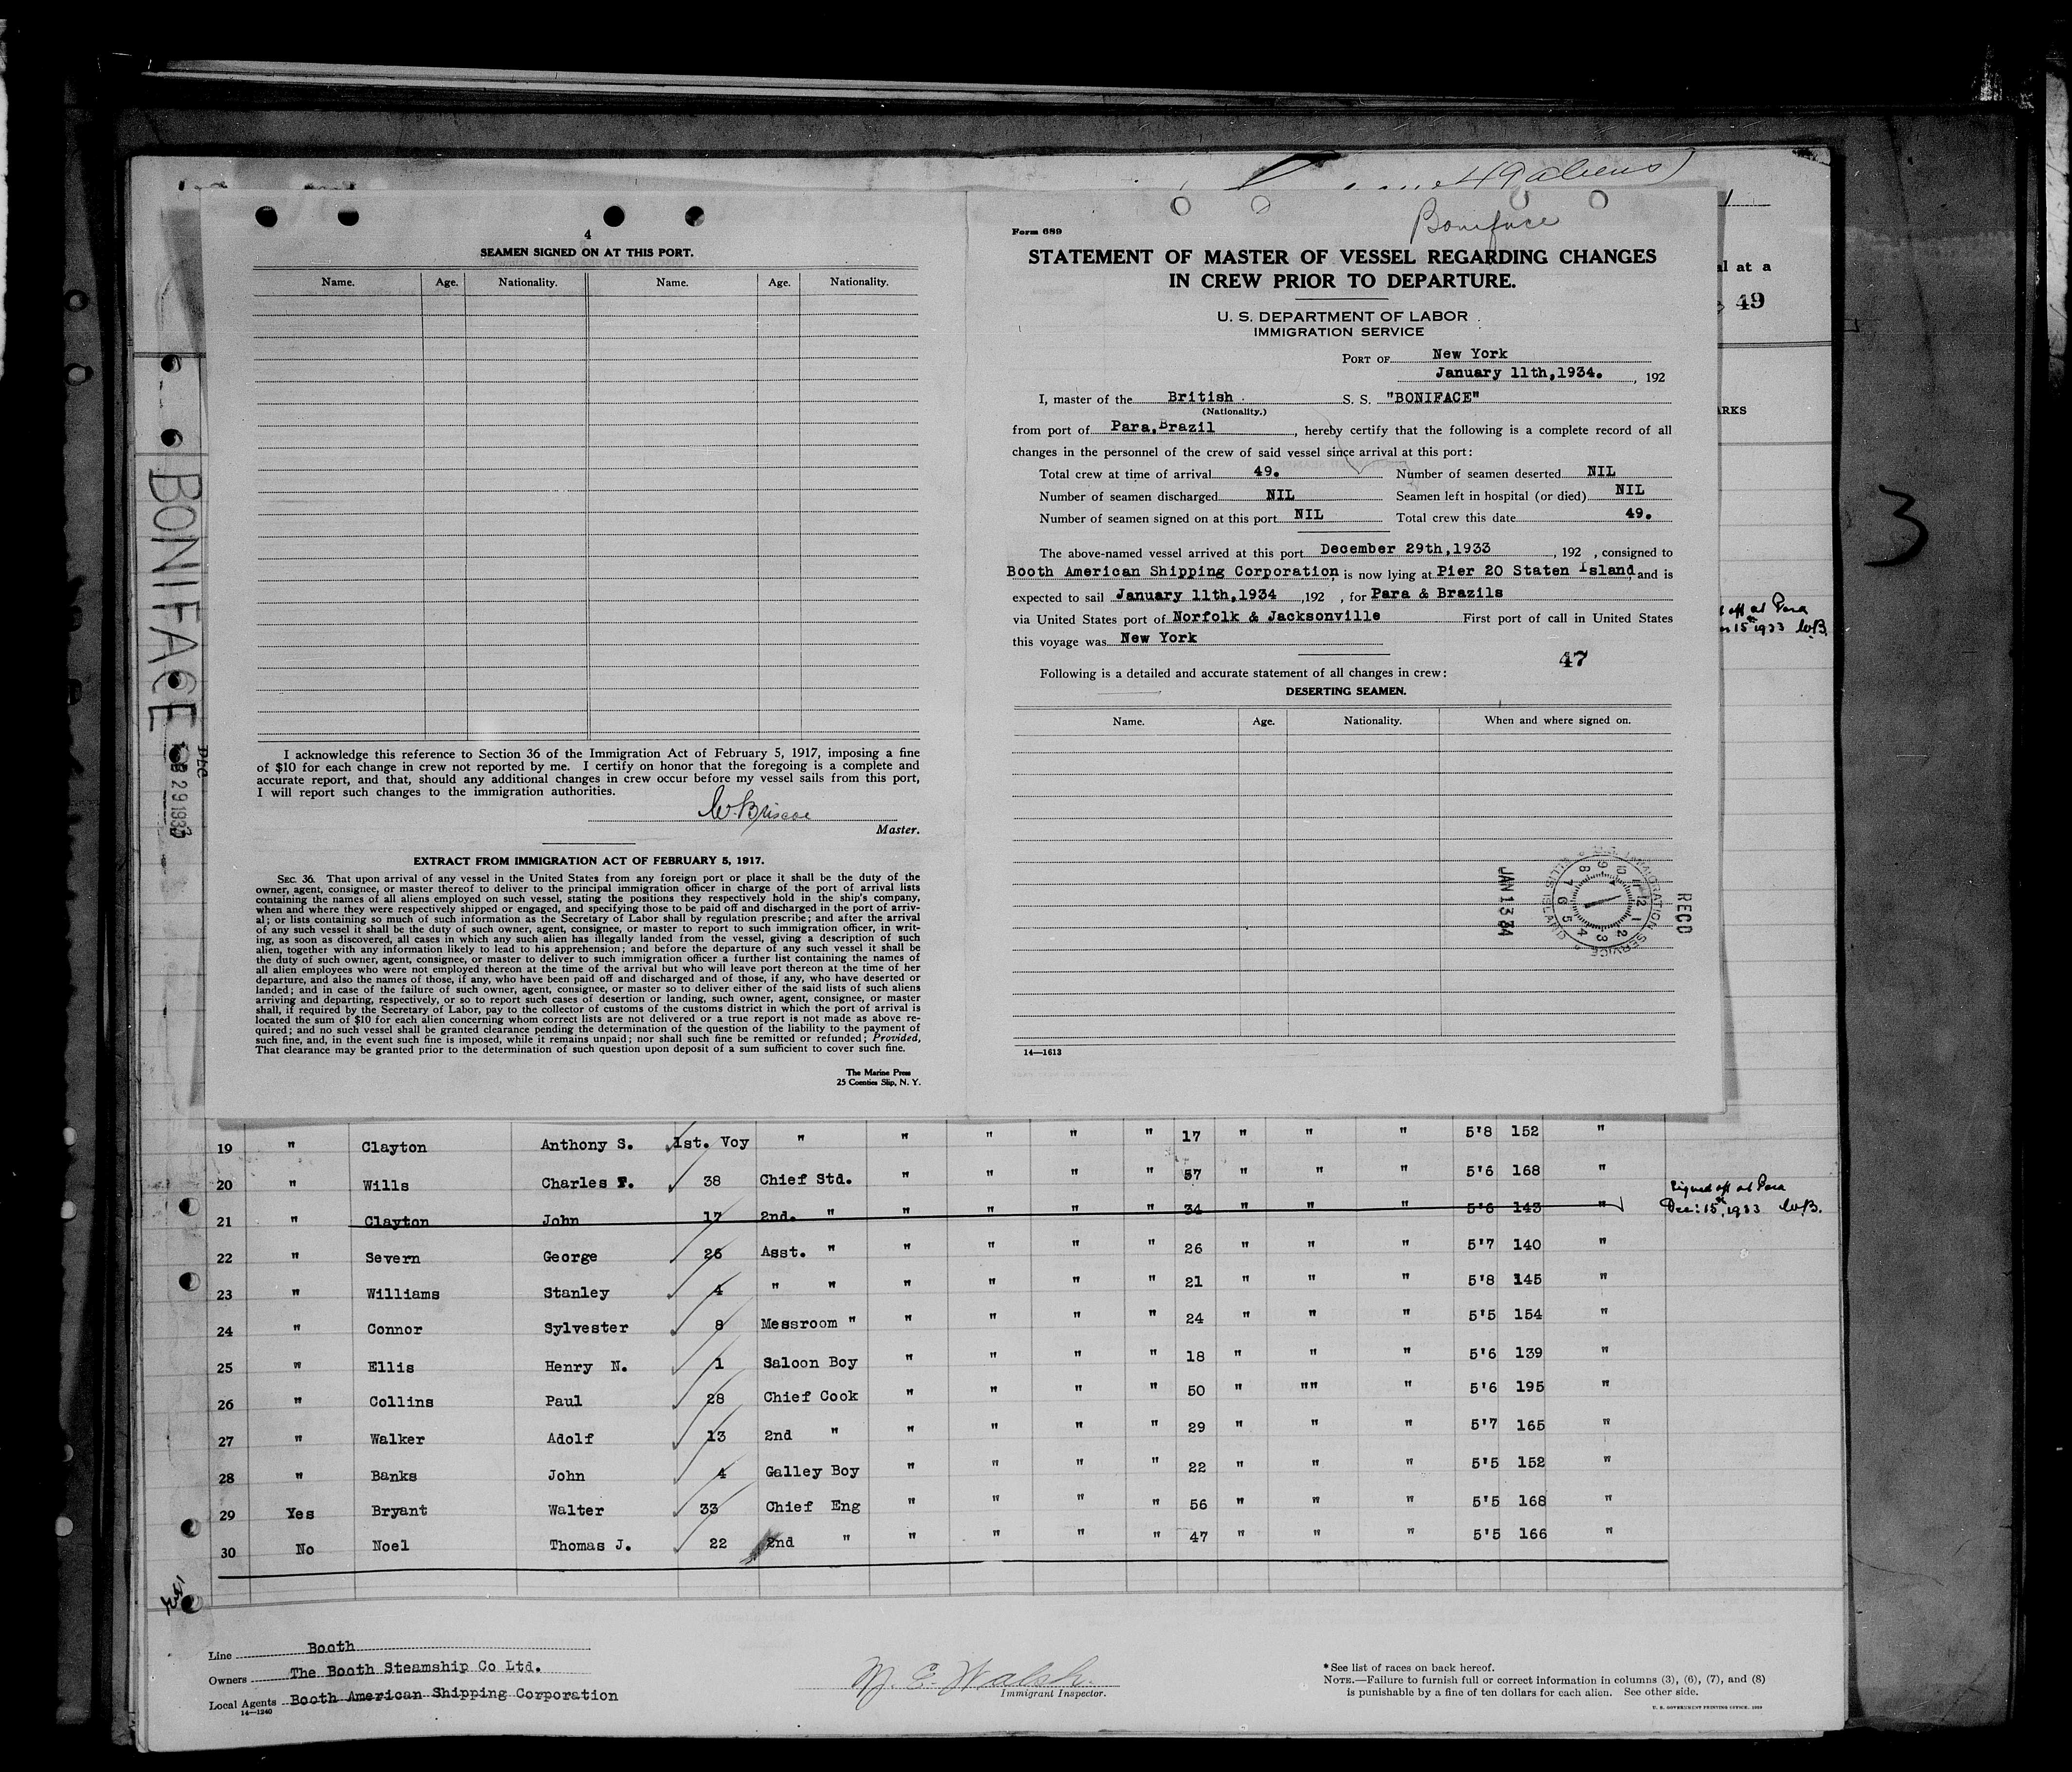 49 aliens)
Boniface
4
SEAMEN SIGNED ON AT THIS PORT.
Name. Age. Nationality. Name. Age. Nationality.
I acknowledge this reference to Section 36 of the Immigration Act of February 5, 1917, imposing a fine
of $10 for each change in crew not reported by me. I certify on honor that the foregoing is a complete and
accurate report, and that, should any additional changes in crew occur before my vessel sails from this port,
I will report such changes to the immigration authorities.
W. Briscoe
Master.
EXTRACT FROM IMMIGRATION ACT OF FEBRUARY 5, 1917.
SEC. 36. That upon arrival of any vessel in the United States from any foreign port or place it shall be the duty of the
owner, agent, consignee, or master thereof to deliver to the principal immigration officer in charge of the port of arrival lists
containing the names of all aliens employed on such vessel, stating the positions they respectively hold in the ship's company,
when and where they were respectively shipped or engaged, and specifying those to be paid off and discharged in the port of arriv-
al; or lists containing so much of such information as the Secretary of Labor shall by regulation prescribe; and after the arrival
of any such vessel it shall be the duty of such owner, agent, consignee, or master to report to such immigration officer, in writ-
ing, as soon as discovered, all cases in which any such alien has illegally landed from the vessel, giving a description of such
alien, together with any information likely to lead to his apprehension; and before the departure of any such vessel it shall be
the duty of such owner, agent, consignee, or master to deliver to such immigration officer a further list containing the names of
all alien employees who were not employed thereon at the time of the arrival but who will leave port thereon at the time of her
departure, and also the names of those, if any, who have been paid off and discharged and of those, if any, who have deserted or
landed; and in case of the failure of such owner, agent, consignee, or master so to deliver either of the said lists of such aliens
arriving and departing, respectively, or so to report such cases of desertion or landing, such owner, agent, consignee, or master
shall, if required by the Secretary of Labor, pay to the collector of customs of the customs district in which the port of arrival is
located the sum of $10 for each alien concerning whom correct lists are not delivered or a true report is not made as above re-
quired; and no such vessel shall be granted clearance pending the determination of the question of the liability to the payment of
such fine, and, in the event such fine is imposed, while it remains unpaid; nor shall such fine be remitted or refunded; Provided,
That clearance may be granted prior to the determination of such question upon deposit of a sum sufficient to cover such fine.
The Marine Press
25 Coenties Slip, N. Y.
Form 689
STATEMENT OF MASTER OF VESSEL REGARDING CHANGES
IN CREW PRIOR TO DEPARTURE.
U. S. DEPARTMENT OF LABOR
IMMIGRATION SERVICE
PORT OF New York
January 11th,1934. , 192
I, master of the British S. S. "BONIFACE"
(Nationality.)
from port of Para,Brazil , hereby certify that the following is a complete record of all
changes in the personnel of the crew of said vessel since arrival at this port:
Total crew at time of arrival 49. Number of seamen deserted NIL
Number of seamen discharged NIL Seamen left in hospital (or died) NIL
Number of seamen signed on at this port NIL Total crew this date 49.
The above-named vessel arrived at this port December 29th,1933 , 192 , consigned to
Booth American Shipping Corporation, is now lying at Pier 20 Staten Island, and is
expected to sail January 11th,1934 ,192 , for Para & Brazils
via United States port of Norfolk & Jacksonville First port of call in United States
this voyage was New York
47
Following is a detailed and accurate statement of all changes in crew:
DESERTING SEAMEN.
Name. Age. Nationality. When and where signed on.
JAN 13 34
RECD
14—1613
BONIFACE
DEC
29 193
al at a
49
ARKS
off at Para
15th 1933 W.B.
3
19 " Clayton Anthony S. 1st. Voy " " " " " 17 " " " 5'8 152 "
20 " Wills Charles F. 38 Chief Std. " " " " 57 " " " 5'6 168 "
21 " Clayton John 17 2nd. " " " " " 34 " " " 5'6 143 " Signed off at Para
Dec: 15th, 1933 W.B.
22 " Severn George 26 Asst. " " " " " 26 " " " 5'7 140 "
23 " Williams Stanley 4 " " " " " " 21 " " " 5'8 145 "
24 " Connor Sylvester 8 Messroom " " " " " 24 " " " 5'5 154 "
25 " Ellis Henry N. 1 Saloon Boy " " " " 18 " " " 5'6 139 "
26 " Collins Paul 28 Chief Cook " " " " 50 " "" " 5'6 195 "
27 " Walker Adolf 13 2nd " " " " " 29 " " " 5'7 165 "
28 " Banks John 4 Galley Boy " " " " 22 " " " 5'5 152 "
29 Yes Bryant Walter 33 Chief Eng " " " " 56 " " " 5'5 168 "
30 No Noel Thomas J. 22 2nd " " " " " 47 " " " 5'5 166 "
Line Booth
Owners The Booth Steamship Co Ltd.
Local Agents Booth American Shipping Corporation
14—1240
M. E. Walsh
Immigrant Inspector.
* See list of races on back hereof.
NOTE.—Failure to furnish full or correct information in columns (3), (6), (7), and (8)
is punishable by a fine of ten dollars for each alien. See other side.
U. S. GOVERNMENT PRINTING OFFICE